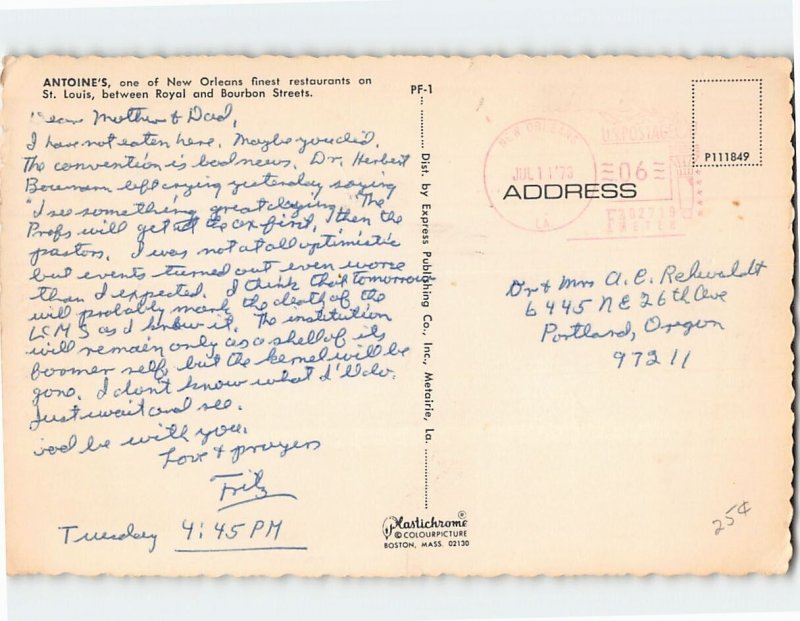 ANTOINE'S, one of New Orleans finest restaurants on
St. Louis, between Royal and Bourbon Streets.
Dear Mother & Dad,
I have not eaten here. Maybe you did.
The convention is bad news. Dr. Herbert
Boumann left crying yesterday saying
"I see something great dying." The
Profs will get the ax first, then the
pastors. I was not at all optimistic
but events turned out even worse
than I expected. I think that tomorrow
will probably mark the death of the
LCMS as I knew it. The institution
will remain only as a shell of its
foormer self but the kernel will be
gone. I don't know what I'll do.
Just wait and see.
God be with you.
Love & prayers
Fritz
Tuesday 4:45 PM
PF-1
Dist. by Express Publishing Co., Inc., Metairie, La.
Plastichrome®
© COLOURPICTURE
BOSTON, MASS. 02130
NEW ORLEANS
JUL 11 '73
LA
U.S. POSTAGE
06
P111849
ADDRESS
Dr & Mrs A. C. Rehwaldt
6445 NE 26th Ave
Portland, Oregon
97211
25¢